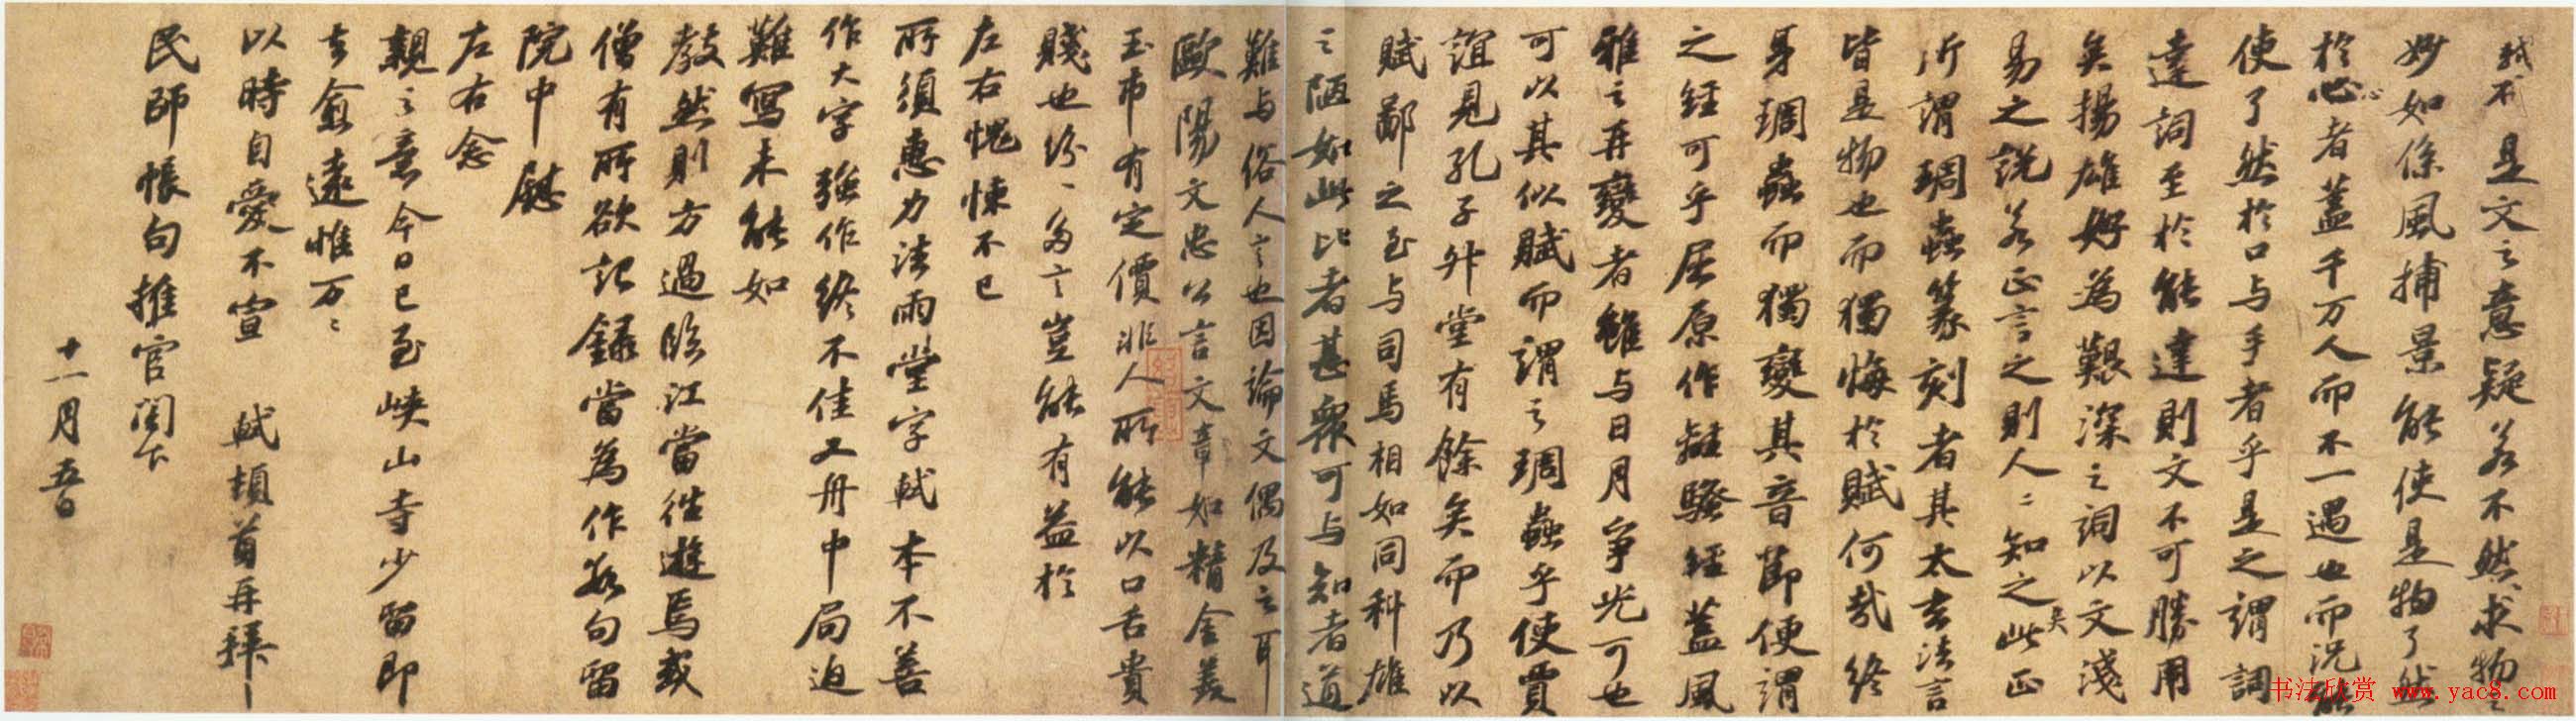 軾不
是文之意疑若不然求物之
妙如係風捕景能使是物了然
於心者蓋千万人而不一遇也而況能
使了然於口与手者乎是之謂詞
達詞至於能達則文不可勝用
矣揚雄好為艱深之詞以文淺
易之說若正言之則人〻知之矣此正
所謂琱蟲篆刻者其太玄法言
皆是物也而獨悔於賦何哉終
身琱蟲而獨變其音節便謂
之經可乎屈原作離騷經蓋風
雅之再變者雖与日月爭光可也
可以其似賦而謂之琱蟲乎使賈
誼見孔子升堂有餘矣而乃以
賦鄙之至与司馬相如同科雄
之陋如此比者甚眾可与知者道
難与俗人言也因論文偶及之耳
歐陽文忠公言文章如精金美
玉市有定價非人所能以口舌貴
賤也紛〻多言豈能有益於
左右愧悚不已
所須惠力法雨堂字軾本不善
作大字強作終不佳又舟中局迫
難寫未能如
教然則方過臨江當往遊焉或
僧有所欲記錄當為作數句留
院中慰
左右念
親之意今日已至峽山寺少留即
去愈遠惟万〻
以時自愛不宣 軾頓首再拜
民師帳句推官閣下
十一月五日
书法欣赏 www.yac8.com